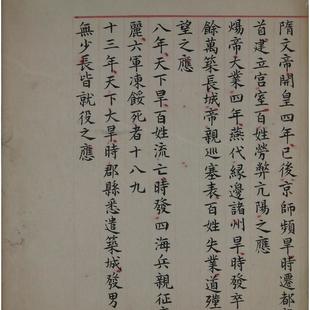 隋文帝開皇四年已後京師頻旱時遷都
首建立宮室百姓勞弊亢陽之應
煬帝大業四年燕代緣邊諸州旱時發卒
餘萬築長城帝親巡塞表百姓失業道殣
望之應
八年天下旱百姓流亡時發四海兵親征
麗六軍凍餒死者十八九
十三年天下大旱時郡縣悉遣築城發男
無少長皆就役之應